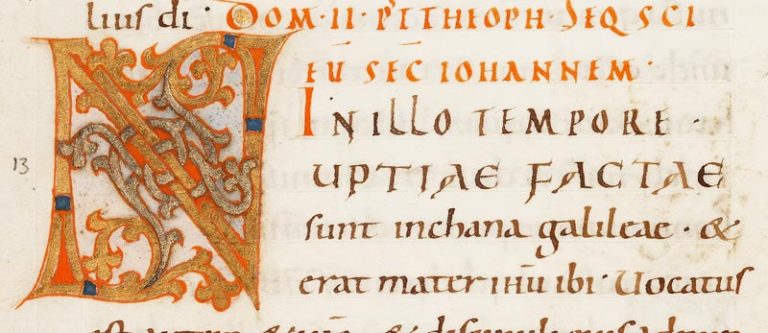 lius di · DOM·II· P' THEOPH· SEQ SCI
EU SEC IOHANNEM·
IN ILLO TEMPORE·
NUPTIAE FACTAE
13
sunt in chana galileae· &
erat mater ihu ibi· Uocatus